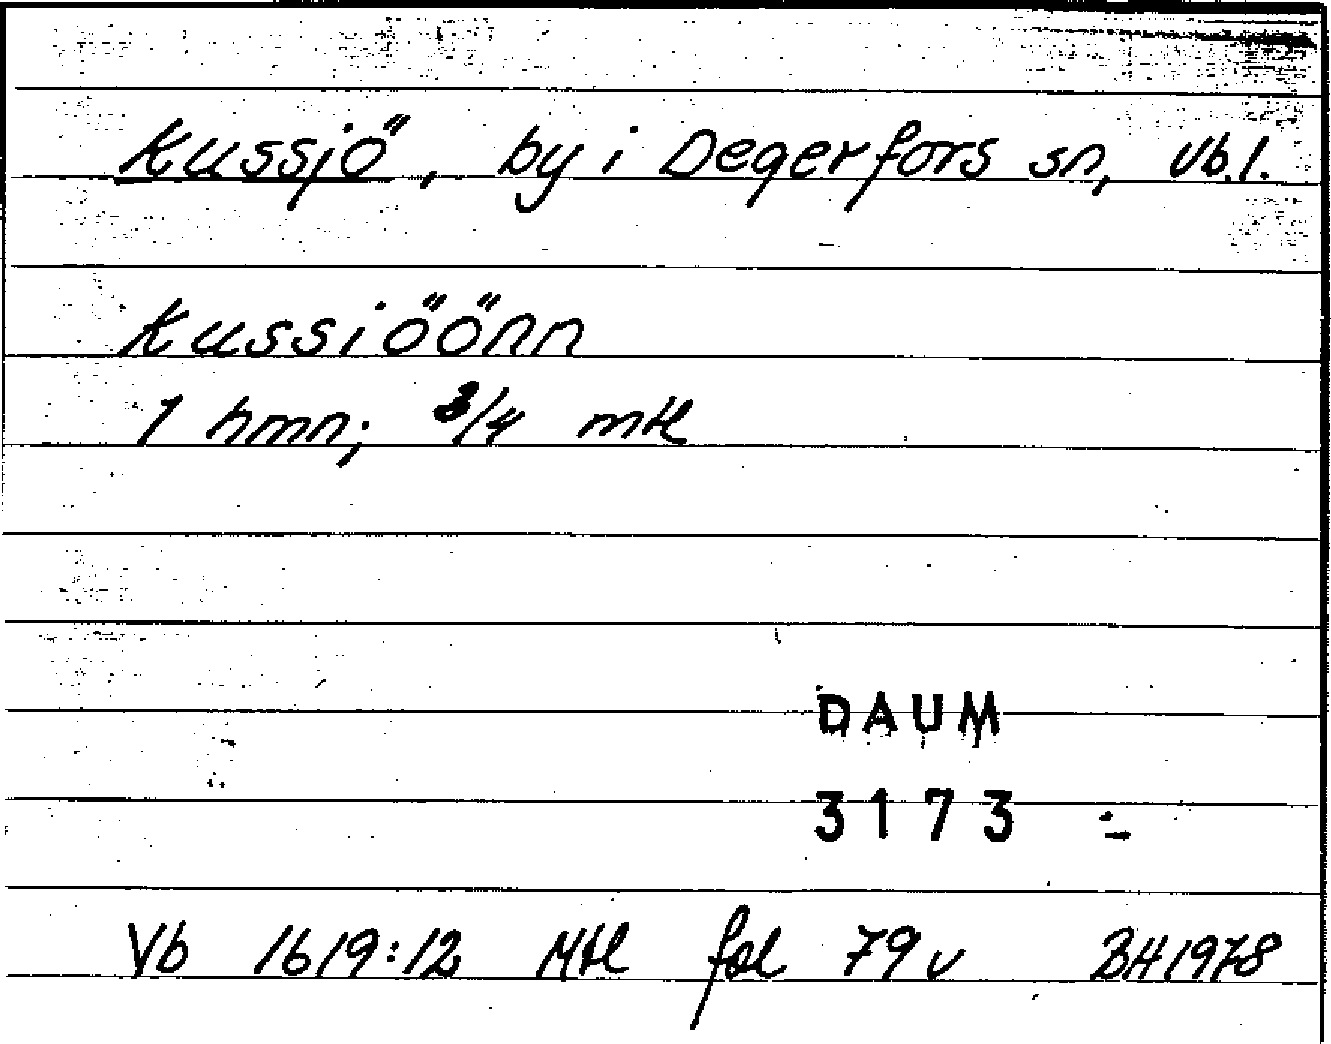 Kussjö, by i Degerfors sn, Vb.l.
Kussiöönn
1 hmn; 3/4 mtl
DAUM
3173
Vb 1619:12 Mtl fol 79v BH 1978